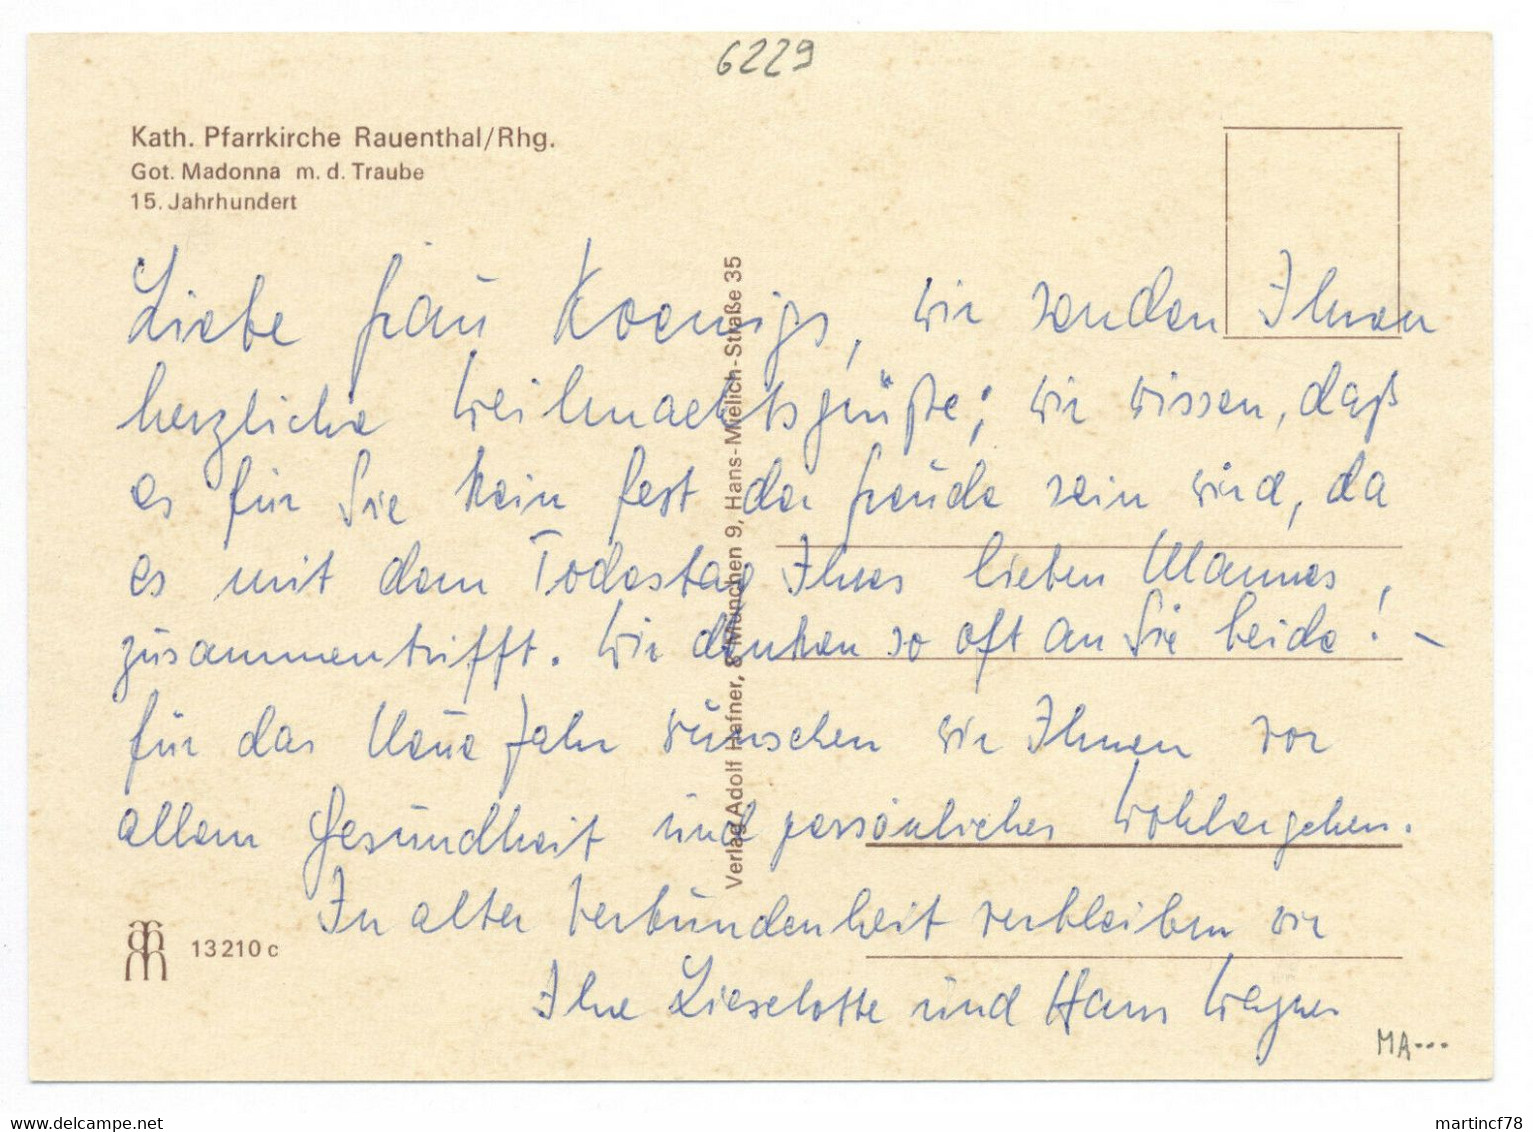 6229
Kath. Pfarrkirche Rauenthal/Rhg.
Got. Madonna m. d. Traube
15. Jahrhundert
Liebe Frau Koenigs, wir senden Ihnen
herzliche Weihnachtsgrüße; wir wissen, daß
es für Sie kein Fest der Freude sein wird, da
es mit dem Todestag Ihres lieben Mannes,
zusammentrifft. Wir denken so oft an Sie beide! –
für das Neue Jahr wünschen wir Ihnen vor
allem Gesundheit und persönliches Wohlergehen.
In alter Verbundenheit verbleiben wir
Ihre Lieselotte und Hans Wagner
Verlag Adolf Hafner, 8 München 9, Hans-Mielich-Straße 35
13210 c
MA...
www.delcampe.net
martincf78